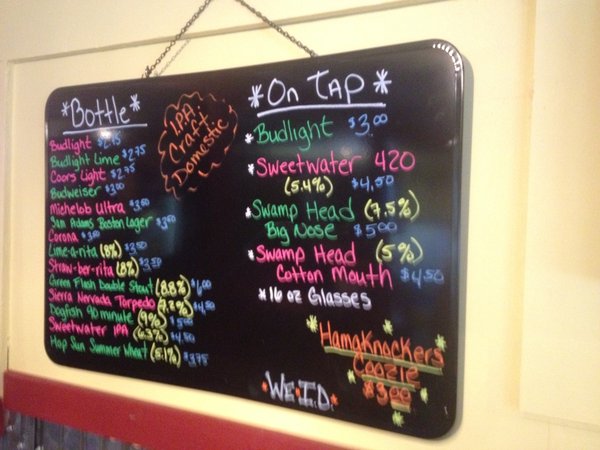 *Bottle*
Budlight $2.75
Budlight Lime $2.75
Coors Light $2.75
Budweiser $3.00
Michelob Ultra $3.50
Sam Adams Boston Lager $3.50
Corona $3.50
Lime-a-rita (8%) $3.50
Straw-ber-rita (8%) $3.50
Green Flash Double Stout (8.8%) $6.00
Sierra Nervada Torpedo (7.2%) $4.50
Dogfish 90 minute (9%) $5.00
Sweetwater IPA (6.3%) $4.50
Hop Sun Summer Wheat (5.1%) $3.75
I.P.A
Craft
Domastic
*On TAP*
*Budlight $3.00
*Sweetwater 420
(5.4%) $4.50
*Swamp Head (7.5%)
Big Nose $5.00
*Swamp Head (5%)
Cotton Mouth $4.50
*16 oz Glasses
Hamaknockers
Coozie
$3.00
*WE*I.D.*